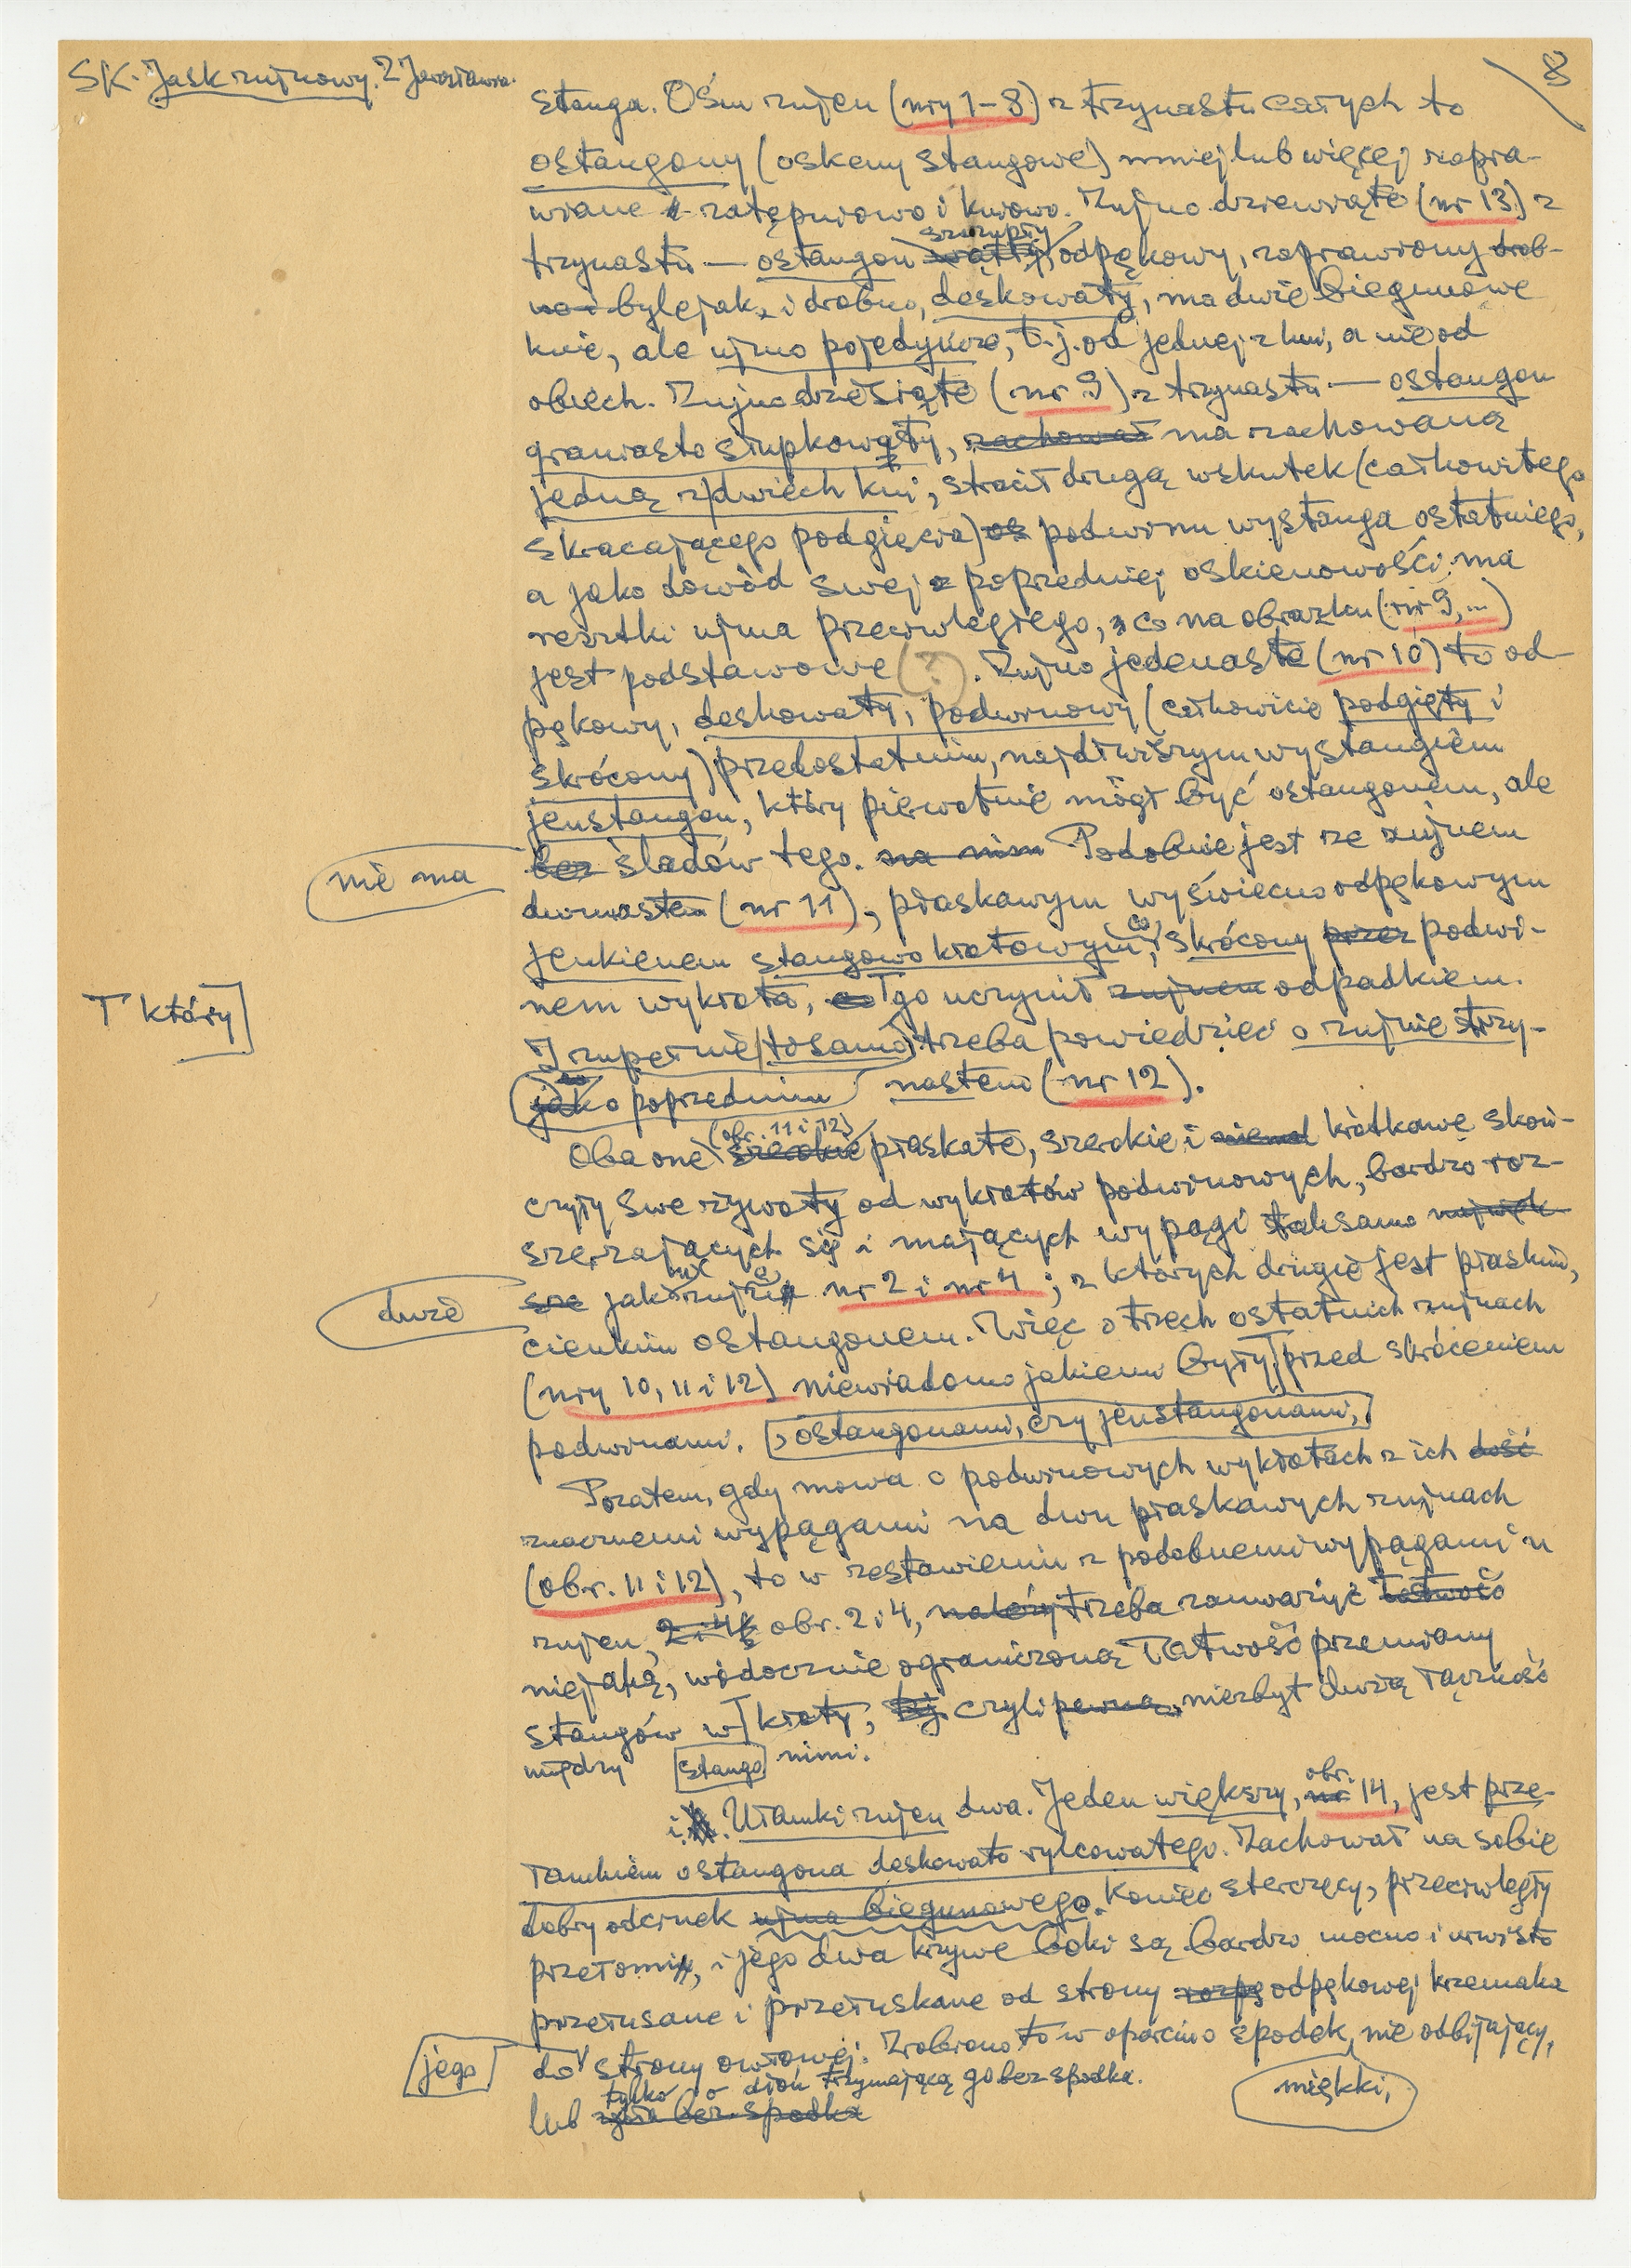 SK. Jaskrujnowy. Z Jarosławia.
8
stanga. Ośm rujen (nry 1-8) z trzynastu całych to
ostangony (oskeny stangowe) mniej lub więcej zapra-
wiane zatępniowo i kniowo. Zujno dziewiąte (nr 13) z
szczupły
trzynastu — ostangon wątły, odpękowy, zaprawiony drob-
no i bylejak i drobno, deskowaty, ma dwie biegunowe
knie, ale ujmo pojedyncze, t.j. od jednej z kni, a nie od
obiech. Zujno dziesiąte (nr 9) z trzynastu — ostangon
graniasto słupkowaty, zachował ma zachowaną
jedną z dwiech kni, stracił drugą wskutek (całkowitego
skracającego podgięcia) os podwinu wystanga ostatniego,
a jako dowód swej poprzedniej oskienowości ma
resztki ujma przeciwległego, co na obrazku (nr 9, ...)
jest podstawowe (?). Zujno jedenaste (nr 10) to od-
pękowy, deskowaty, podwinowy (całkowicie podgięty i
skrócony) przedostatnim, najdłuższym wystangiem
jenstangon, który pierwotnie mógł być ostangonem, ale
nie ma
bez śladów tego. na nim Podobnie jest ze zujnem
dwunastem (nr 11), płaskawym wyświecno odpękowym
jenkienem stangowo kłatowym, co skrócony przez podwi-
T który
nem wykłata, co T go uczynił zujnem odpadkiem.
I zupełnie to samo trzeba powiedzieć o zujnie trzy-
jak o poprzedniem nastem (nr 12).
(obr. 11 i 12)
Oba one szerokie płaskate, szerokie i niemal krótkawe skoń-
czyły swe żywoty od wykłatów podwinowych, bardzo roz-
szerzających się i mających wypągi tak samo najwięk
duże
sze jak zujna nr 2 i nr 4; z których drugie jest płaskim,
cienkim ostangonem. Więc o trzech ostatnich zujnach
(nry 10, 11 i 12) niewiadomo jakiemi były T przed skróceniem
podwinami. ostangonami, czy jenstangonami,
Pozatem, gdy mowa o podwinowych wykłatach z ich dość
znacznemi wypągami na dwu płaskawych zujnach
(obr. 11 i 12), to w zestawieniu z podobnemi wypągami u
zujen, 2 i 4 obr. 2 i 4, należy trzeba zauważyć łatwość
niejaką, widocznie ograniczoną łatwość przemiany
stangów w T kłaty, tj. czyli pewną, niezbyt dużą łączność
między stango nimi.
obr.
i. Ułamki zujen dwa. Jeden większy, nr 14, jest prze-
łamkiem ostangona deskowato rylcowatego. Zachował na sobie
dobry odcinek ujma biegunowego. Koniec sterczący, przeciwległy
przełomi, i jego dwa krzywe boki są bardzo mocno i urwisto
przełusane i przełuskane od strony rozpę odpękowej krzemaka
jego
do V strony owłowej. Zrobiono to w oparciu o spodek, nie odbijający,
miękki,
tylko o dłoń trzymającą go bez spodka.
lub bez spodka